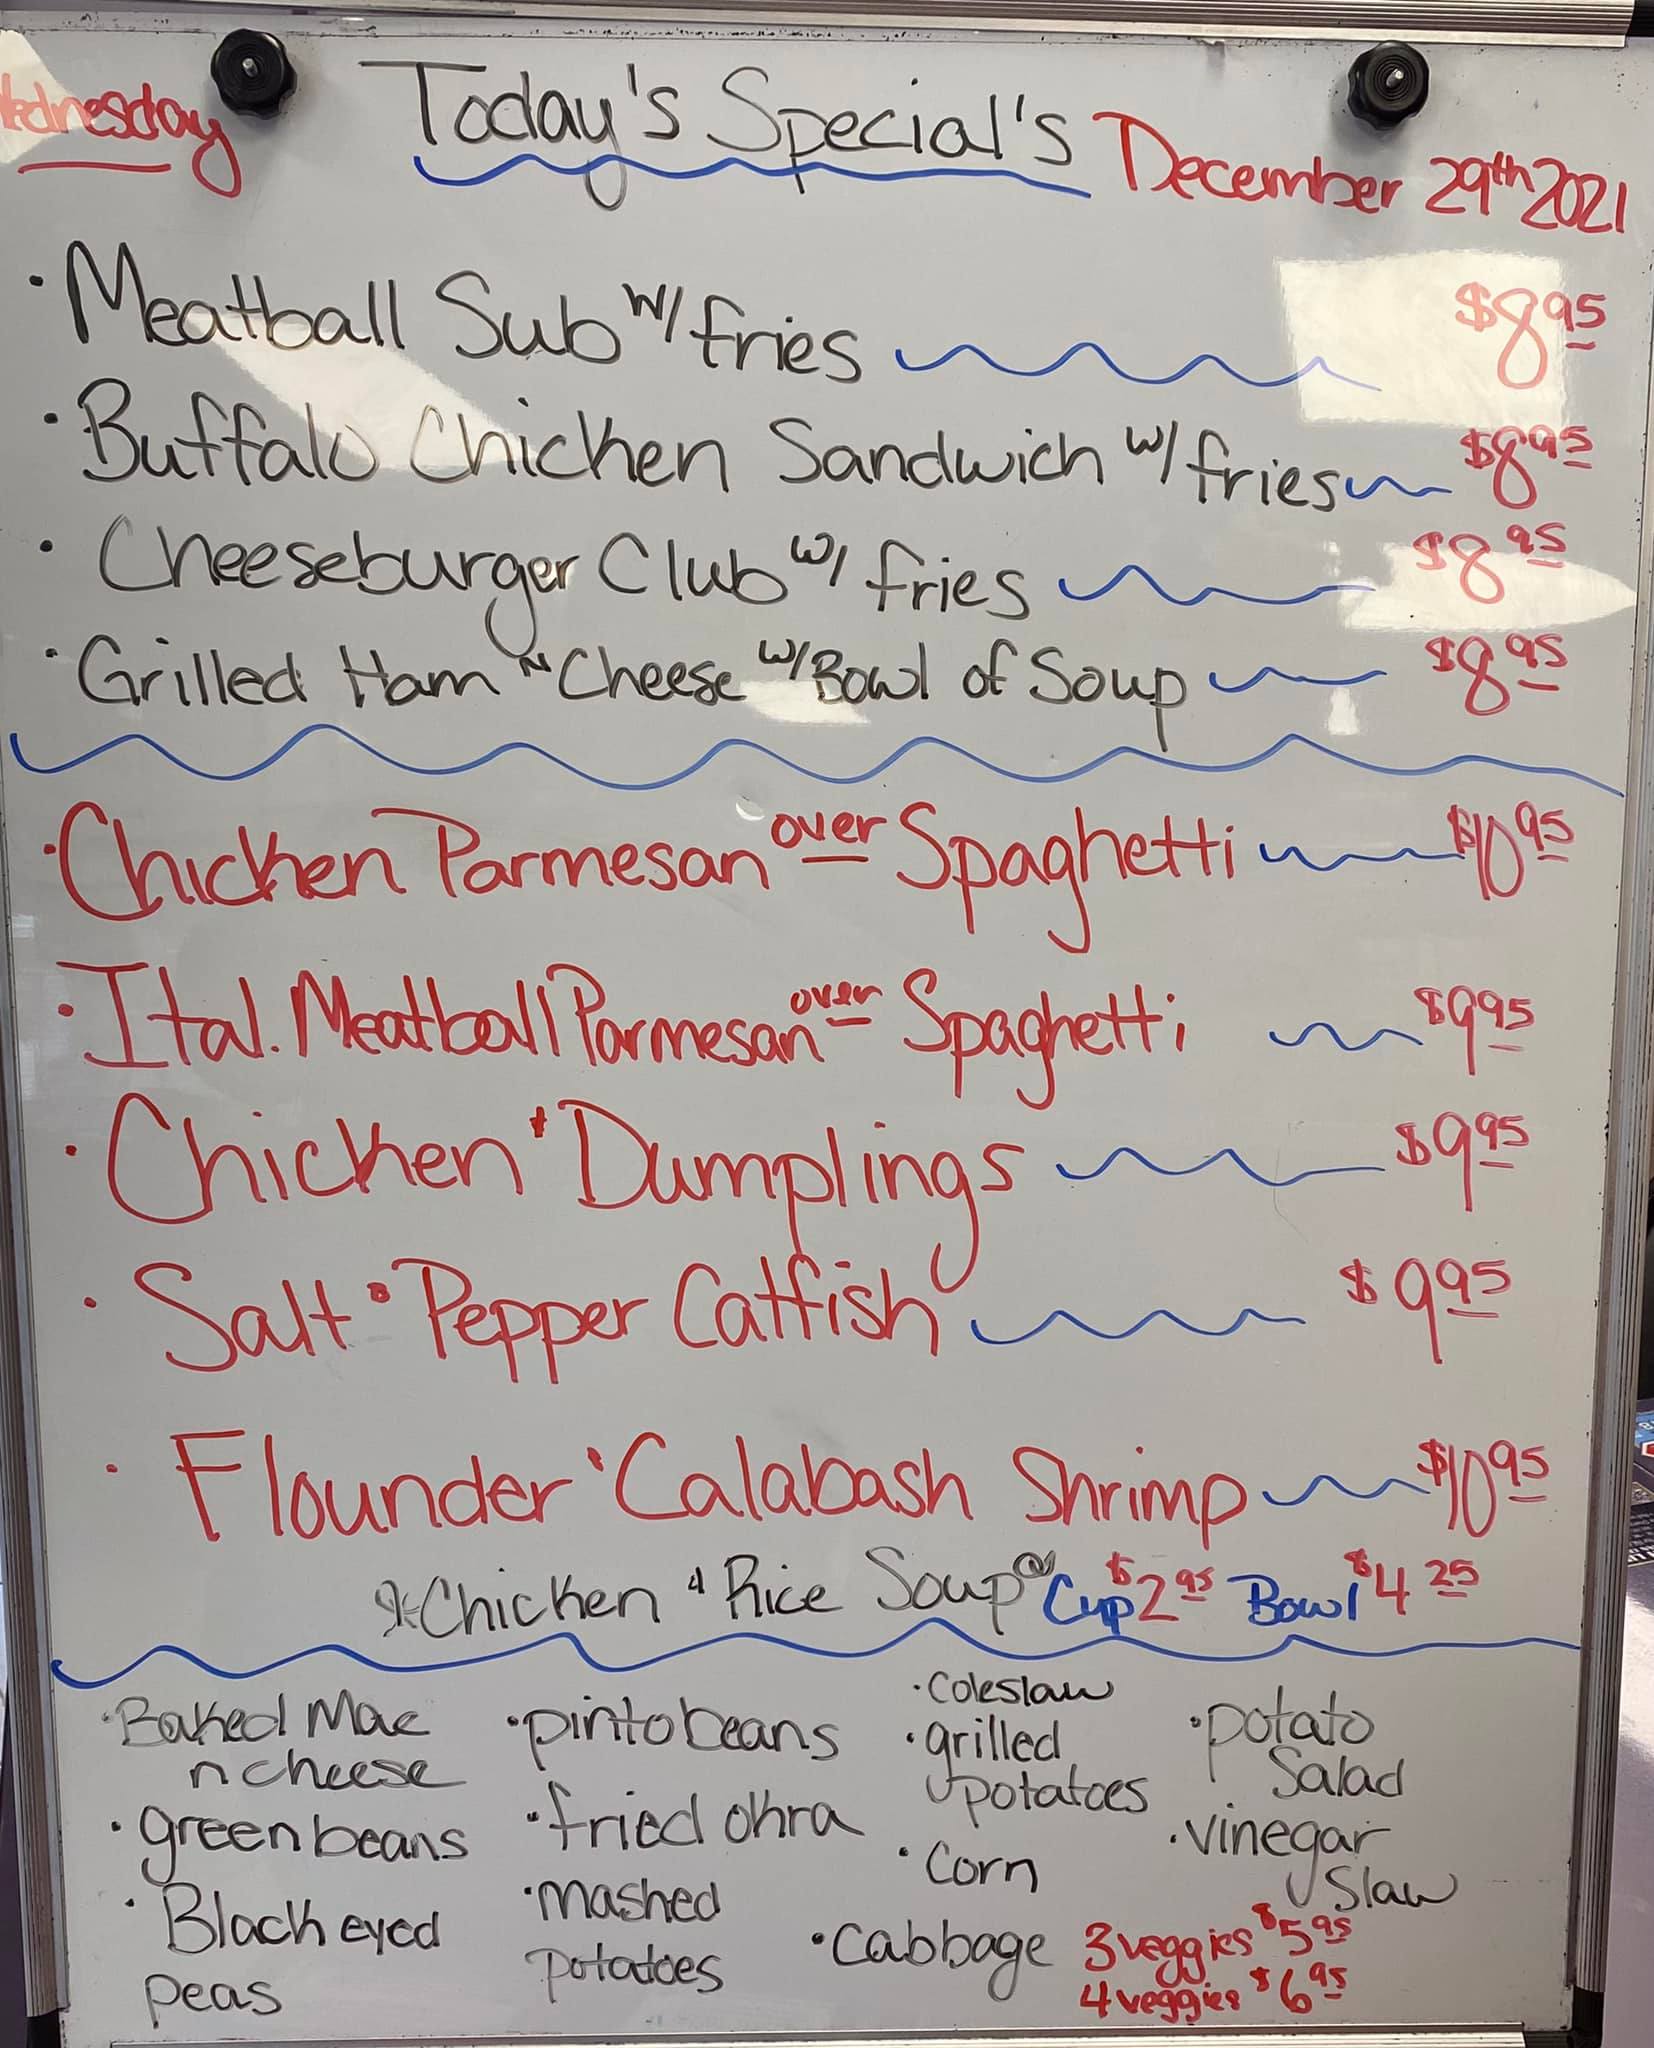 Wednesday Today's Special's December 29th 2021
• Meatball Sub w/ fries $8.95
• Buffalo Chicken Sandwich w/ fries $8.95
• Cheeseburger Club w/ fries $8.95
• Grilled Ham N Cheese w/ Bowl of Soup $8.95
• Chicken Parmesan over Spaghetti $10.95
• Ital. Meatball Parmesan over Spaghetti $9.95
• Chicken & Dumplings $9.95
• Salt & Pepper Catfish $9.95
• Flounder & Calabash Shrimp $10.95
* Chicken & Rice Soup Cup $2.95 Bowl $4.25
• Baked Mac
n cheese
• green beans
• Black eyed
peas
• pinto beans
• fried okra
• mashed
potatoes
• coleslaw
• grilled
potatoes
• corn
• cabbage
• potato
Salad
• vinegar
Slaw
3 veggies $5.95
4 veggies $6.95